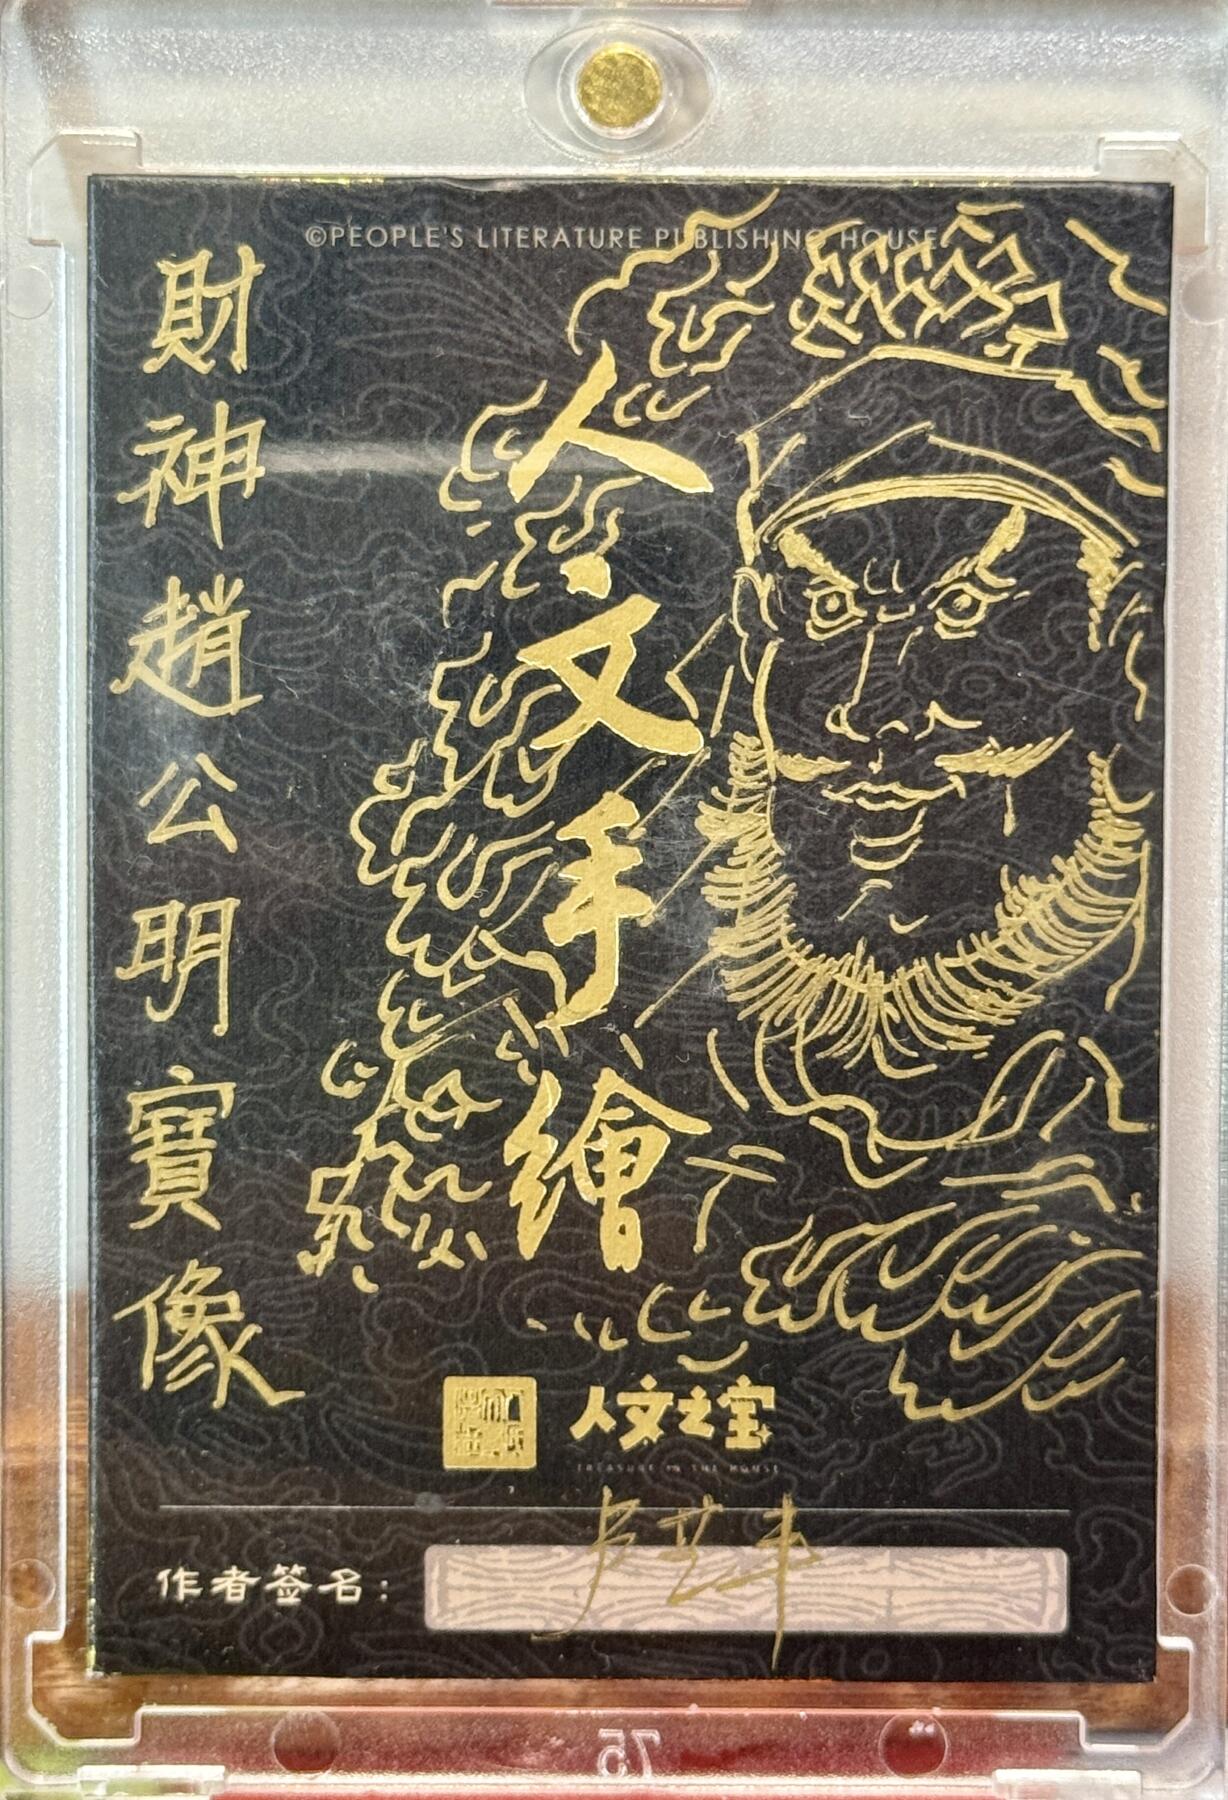 ©PEOPLE'S LITERATURE PUBLISHING HOUSE
財神趙公明寶像
人文手繪
人文之宝
TREASURE IN THE HOUSE
作者签名：
75